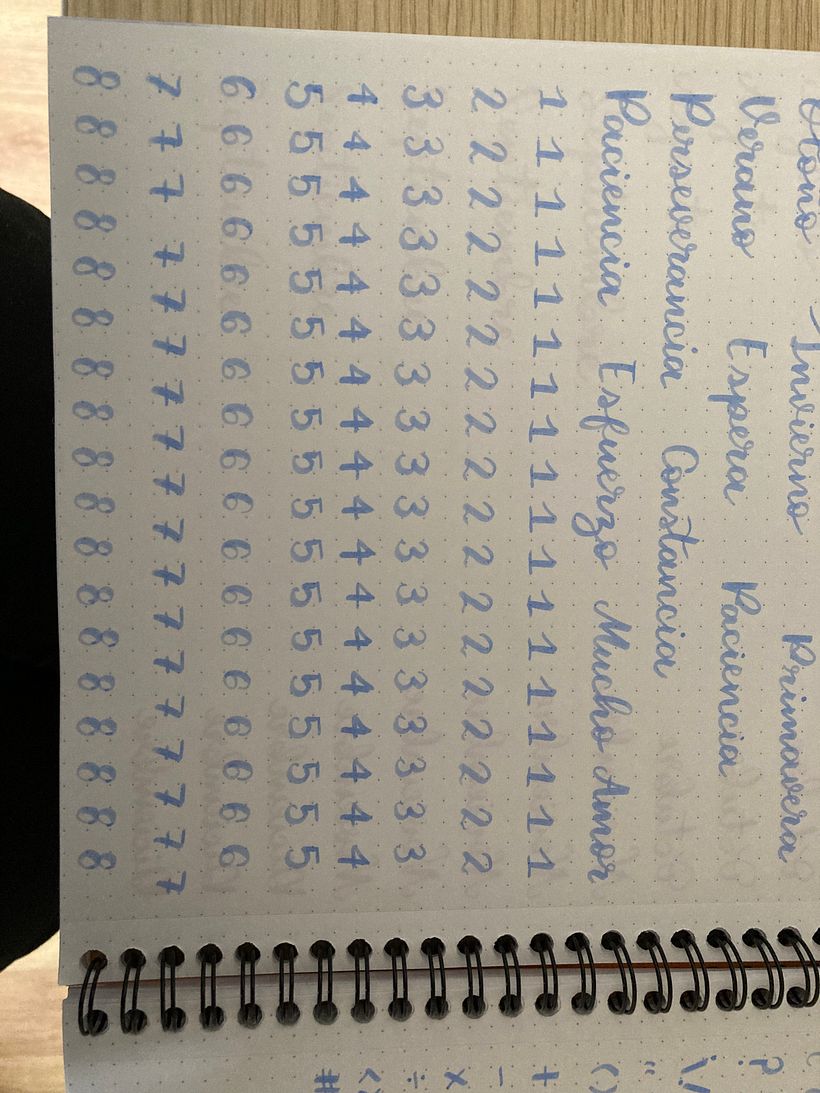 Otoño Invierno Primavera
Verano Espera Paciencia
Perseverancia Constancia
Paciencia Esfuerzo Mucho Amor
1 1 1 1 1 1 1 1 1 1 1 1 1 1 1 1 1 1
2 2 2 2 2 2 2 2 2 2 2 2 2 2 2 2 2 2
3 3 3 3 3 3 3 3 3 3 3 3 3 3 3 3 3 3
4 4 4 4 4 4 4 4 4 4 4 4 4 4 4 4 4 4
5 5 5 5 5 5 5 5 5 5 5 5 5 5 5 5 5 5
6 6 6 6 6 6 6 6 6 6 6 6 6 6 6 6 6 6
7 7 7 7 7 7 7 7 7 7 7 7 7 7 7 7 7 7
8 8 8 8 8 8 8 8 8 8 8 8 8 8 8 8 8 8
"
()
+
-
x
÷
#